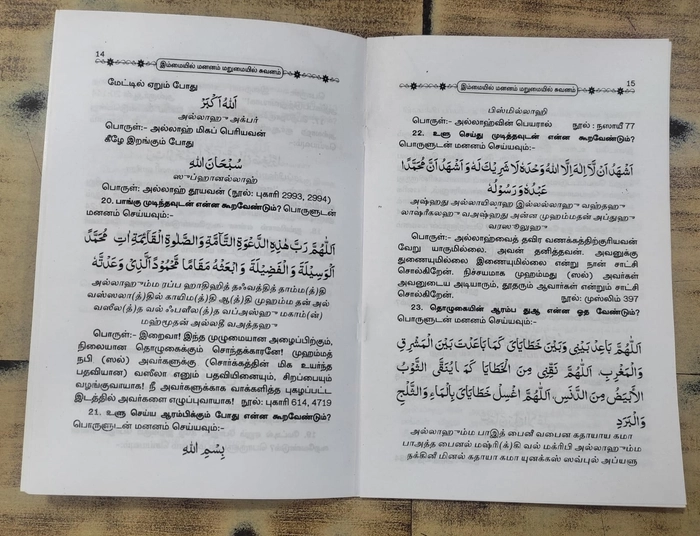 14
இம்மையில் மனனம் மறுமையில் சுவனம்
மேட்டில் ஏறும் போது
اَللهُ اَكْبَرْ
அல்லாஹு அக்பர்
பொருள்:- அல்லாஹ் மிகப் பெரியவன்
கீழே இறங்கும் போது
سُبْحَانَ اللهِ
ஸுப்ஹானல்லாஹ்
பொருள்: அல்லாஹ் தூயவன் (நூல்: புகாரி 2993, 2994)
20. பாங்கு முடிந்தவுடன் என்ன கூறவேண்டும்? பொருளுடன்
மனனம் செய்யவும்:-
اَللّٰهُمَّ رَبَّ هٰذِهِ الدَّعْوَةِ التَّآمَّةِ وَالصَّلٰوةِ الْقَآئِمَةِ اٰتِ مُحَمَّدًا
اَلْوَسِيْلَةَ وَالْفَضِيْلَةَ وَابْعَثْهُ مَقَامًا مَّحْمُوْدًا الَّذِيْ وَعَدْتَّهُ
அல்லாஹும்ம ரப்ப ஹாதிஹித் தஃவத்தித் தாம்ம(த்)தி
வஸ்ஸலா(த்)தில் காயிம(த்)தி ஆ(த்)தி முஹம்மதன் அல்
வஸீல(த்)த வல் ஃபளீல(த்)த வப்அஸ்ஹு மகாம(ன்)
மஹ்மூதன் அல்லதீ வஅத்தஹு
பொருள்:- இறைவா! இந்த முழுமையான அழைப்பிற்கும்,
நிலையான தொழுகைக்கும் சொந்தக்காரனே! முஹம்மத்
நபி (ஸல்) அவர்களுக்கு (சொர்க்கத்தின் மிக உயர்ந்த
பதவியான) வஸீலா எனும் பதவியினையும், சிறப்பையும்
வழங்குவாயாக! நீ அவர்களுக்காக வாக்களித்த புகழப்பட்ட
இடத்தில் அவர்களை எழுப்புவாயாக! நூல்: புகாரி 614, 4719
21. உளு செய்ய ஆரம்பிக்கும் போது என்ன கூறவேண்டும்?
பொருளுடன் மனனம் செய்யவும்:-
بِسْمِ اللهِ
15
இம்மையில் மனனம் மறுமையில் சுவனம்
பிஸ்மில்லாஹி
பொருள்:- அல்லாஹ்வின் பெயரால் நூல் : நஸாயீ 77
22. உளு செய்து முடித்தவுடன் என்ன கூறவேண்டும்?
பொருளுடன் மனனம் செய்யவும்:-
اَشْهَدُ اَنْ لَّآ اِلٰهَ اِلَّا اللهُ وَحْدَهُ لَا شَرِيْكَ لَهُ وَاَشْهَدُ اَنَّ مُحَمَّدًا
عَبْدُهُ وَرَسُوْلُهُ
அஷ்ஹது அல்லாயிலாஹ இல்லல்லாஹு வஹ்தஹு
லாஷரீகலஹு வஅஷ்ஹது அன்ன முஹம்மதன் அப்துஹு
வரஸூலுஹு
பொருள்:- அல்லாஹ்வைத் தவிர வணக்கத்திற்குரியவன்
வேறு யாருமில்லை. அவன் தனித்தவன். அவனுக்கு
துணையுமில்லை இணையுமில்லை என்று நான் சாட்சி
சொல்கிறேன். நிச்சயமாக முஹம்மது (ஸல்) அவர்கள்
அவனுடைய அடியாரும், தூதரும் ஆவார்கள் என்றும் சாட்சி
சொல்கிறேன். நூல்: முஸ்லிம் 397
23. தொழுகையின் ஆரம்ப துஆ என்ன ஓத வேண்டும்?
பொருளுடன் மனனம் செய்யவும்:-
اَللّٰهُمَّ بَاعِدْ بَيْنِيْ وَبَيْنَ خَطَايَايَ كَمَا بَاعَدْتَ بَيْنَ الْمَشْرِقِ
وَالْمَغْرِبِ، اَللّٰهُمَّ نَقِّنِيْ مِنَ الْخَطَايَا كَمَا يُنَقَّى الثَّوْبُ
الْاَبْيَضُ مِنَ الدَّنَسِ، اَللّٰهُمَّ اغْسِلْ خَطَايَايَ بِالْمَاءِ وَالثَّلْجِ
وَالْبَرَدِ
அல்லாஹும்ம பாஇத் பைனீ வபைன கதாயாய கமா
பாஅத்த பைனல் மஷ்ரி(க்)கி வல் மக்ரிபி அல்லாஹும்ம
நக்கினீ மினல் கதாயா கமா யுனக்கஸ் ஸவ்புல் அப்யளு